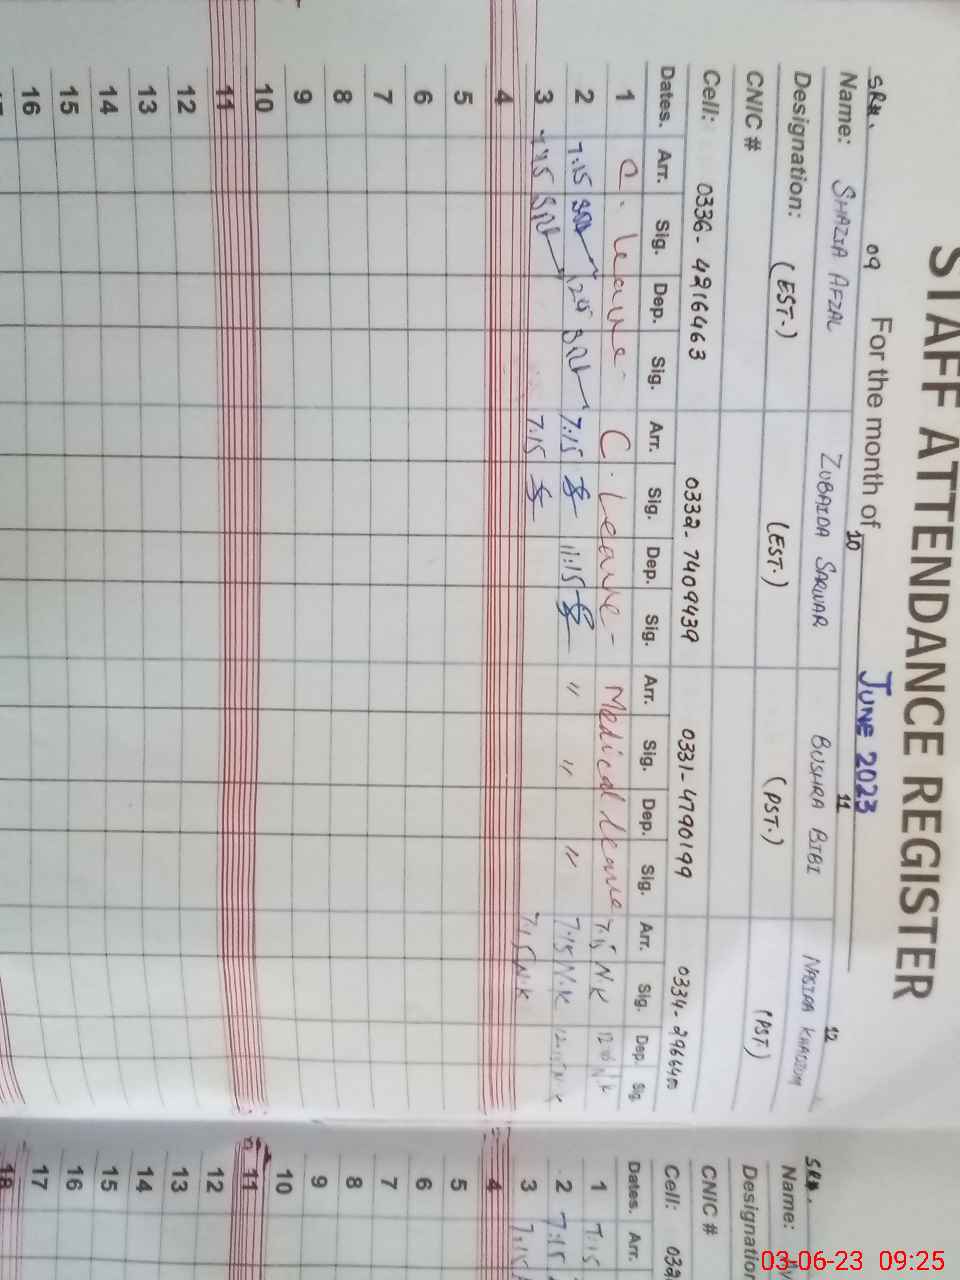 STAFF ATTENDANCE REGISTER
For the month of JUNE 2023
SR#. 09 10 11 12
Name: SHAZIA AFZAL ZUBAIDA SARWAR BUSHRA BIBI
Designation: (EST.) (EST.) (PST.) (PST.)
CNIC #
Cell: 0336-4216463 0332-7409439 0331-4790199
Dates. Arr. Sig. Dep. Sig. Arr. Sig. Dep. Sig. Arr. Sig. Dep. Sig. Arr. Sig. Dep. Sig.
1 C. Leave - C. Leave - Medical Leave 7.15 N.K
2 7.15 7:15 11:15 " " " 7.15 N.K
3 7.15 7.15 N.K
4
5
6
7
8
9
10
11
12
13
14
15
16
SR#.
Name:
Designation
CNIC #
Cell:
Dates. Arr.
1 7:15
2 7:15
3 7:15
4
5
6
7
8
9
10
11
12
13
14
15
16
17
18
03-06-23 09:25